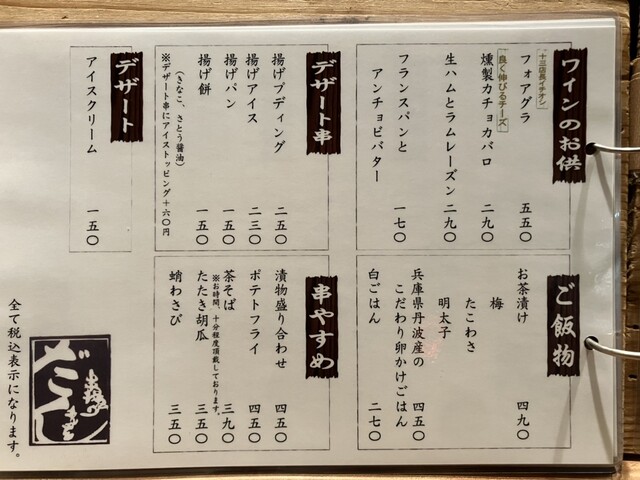 ワインのお供
十三店長イチオシ
フォアグラ 五五〇
良く伸びるチーズ
燻製カチョカバロ 二九〇
生ハムとラムレーズン 二九〇
フランスパンと
アンチョビバター 一七〇
デザート串
揚げプディング 二五〇
揚げアイス 二三〇
揚げパン 一五〇
揚げ餅 一五〇
(きなこ、さとう醤油)
※デザート串にアイストッピング+六〇円
デザート
アイスクリーム 一五〇
ご飯物
お茶漬け 四九〇
梅
たこわさ
明太子
兵庫県丹波産の
こだわり卵かけごはん 四五〇
白ごはん 二七〇
串やすめ
漬物盛り合わせ 四五〇
ポテトフライ 四五〇
茶そば 三九〇
※お時間、十分程度頂戴しております。
たたき胡瓜 三五〇
蛸わさび 三五〇
全て税込表示になります。